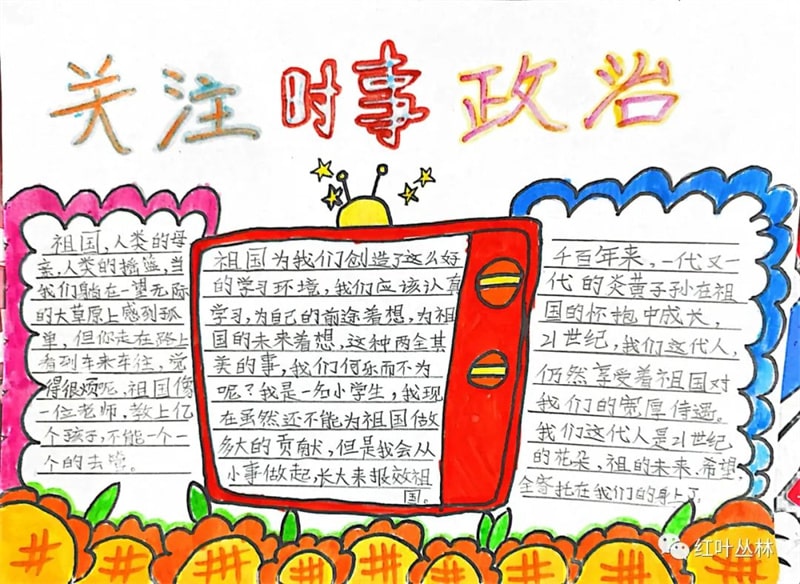 关注时事政治
祖国,人类的母
亲,人类的摇篮,当
我们躺在一望无际
的大草原上感到孤
单,但你走在路上
看到车来车往,觉
得很烦呢,祖国像
一位老师,教上亿
个孩子,不能一个一
个的去管。
祖国为我们创造了这么好
的学习环境,我们应该认真
学习,为自己的前途着想,为祖
国的未来着想,这种两全其
美的事,我们何乐而不为
呢?我是一名小学生,我现
在虽然还不能为祖国做
多大的贡献,但是我会从
小事做起,长大来报效祖
国。
千百年来,一代又一
代的炎黄子孙在祖
国的怀抱中成长,
21世纪,我们这代人,
仍然享受着祖国对
我们的宽厚待遇。
我们这代人是21世纪
的花朵,祖的未来、希望,
全寄托在我们的身上了
红叶丛林